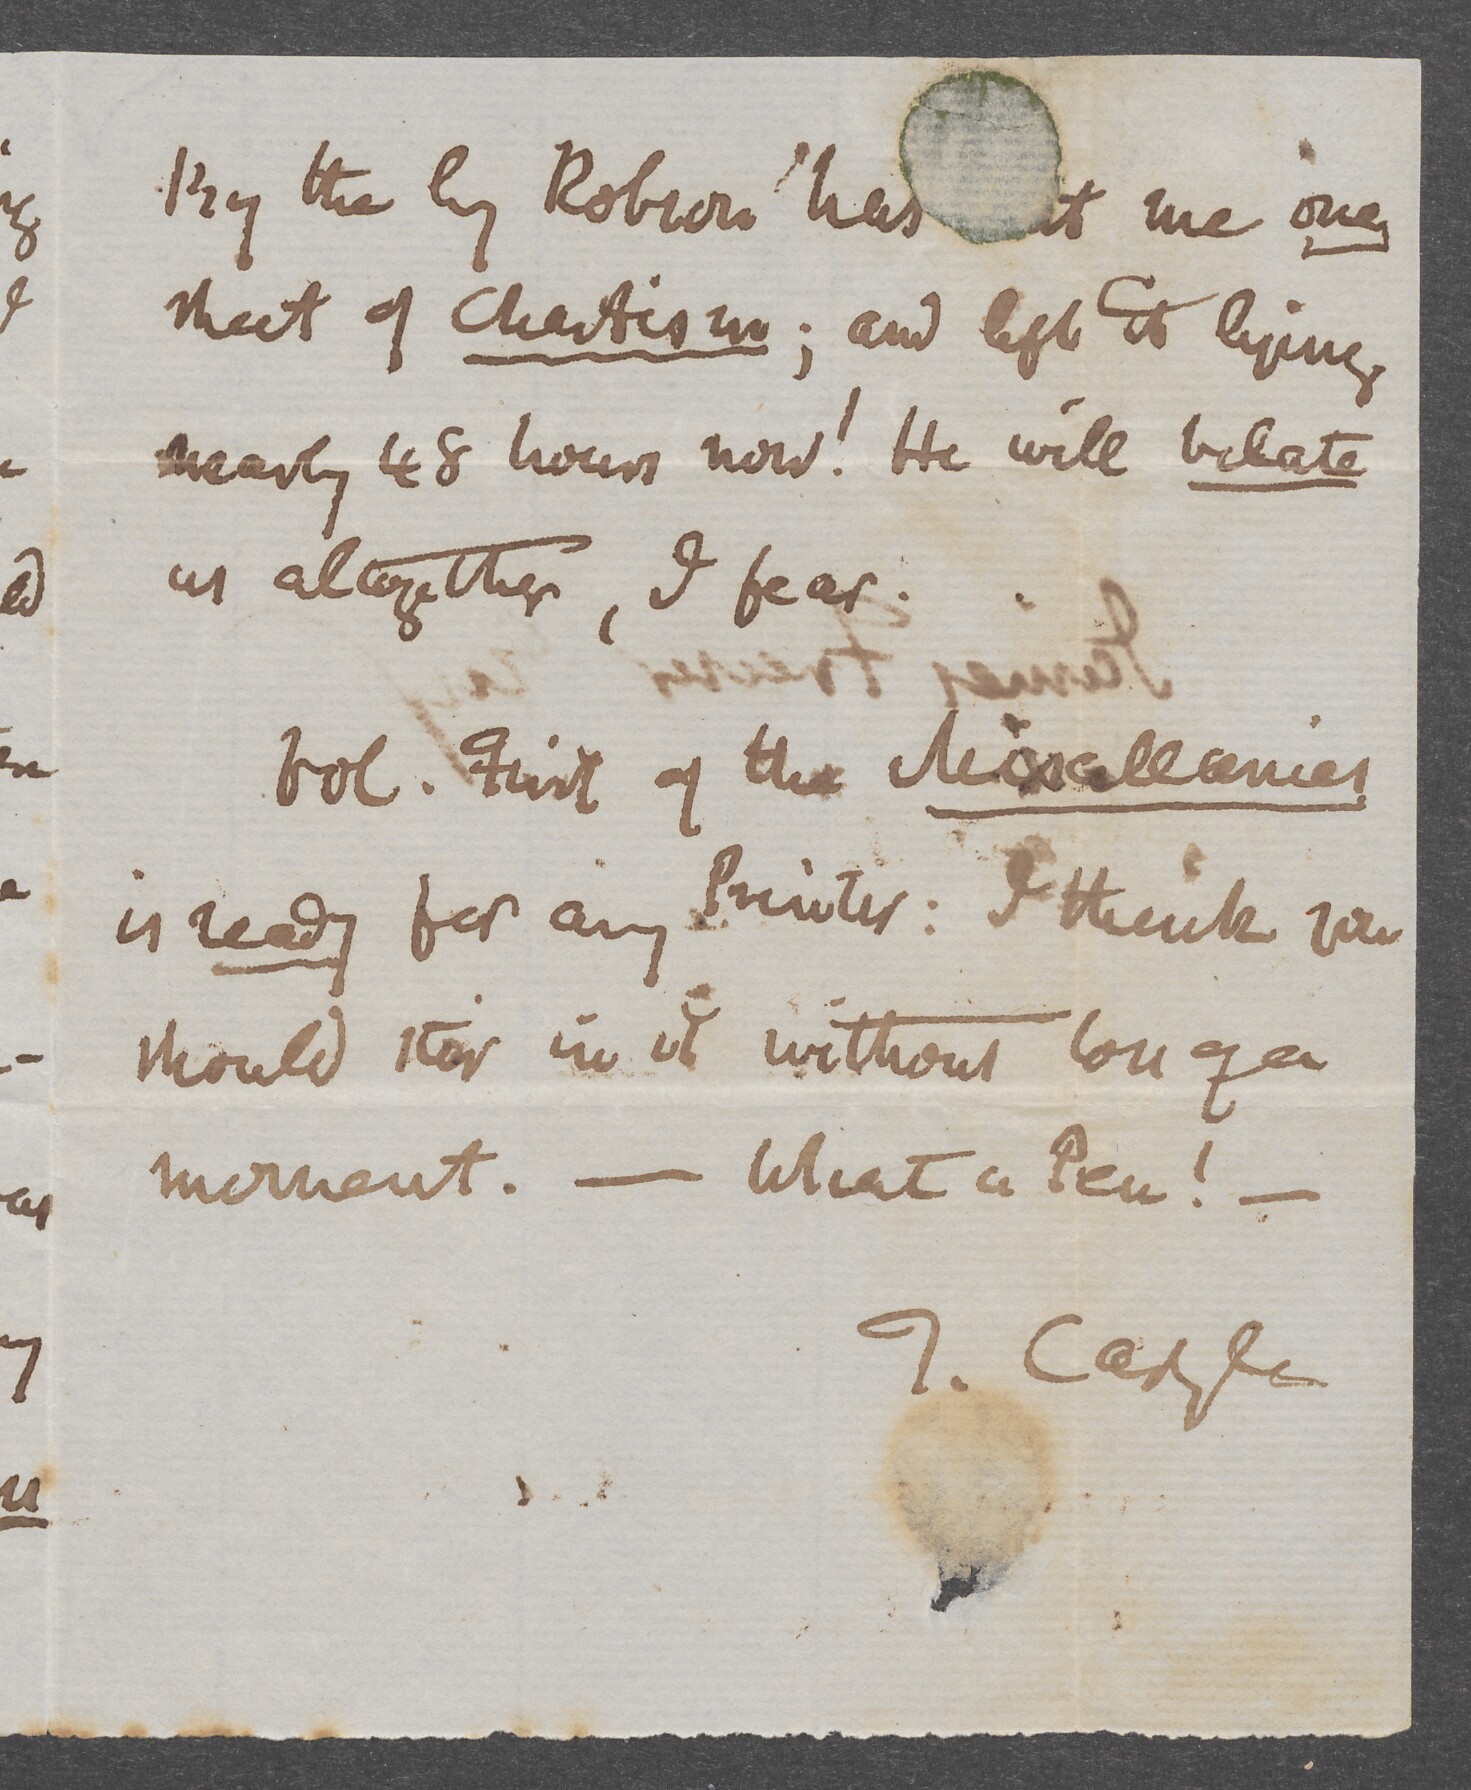 By the by Robson has me one
sheet of Chartism; and left it lying
nearly 48 hours now! He will belate
us altogether, I fear.
Vol. First of the Miscellanies
is ready for any Printer: I think you
should stir in it without longer
moment. — What a Pen! —
T. Carlyle